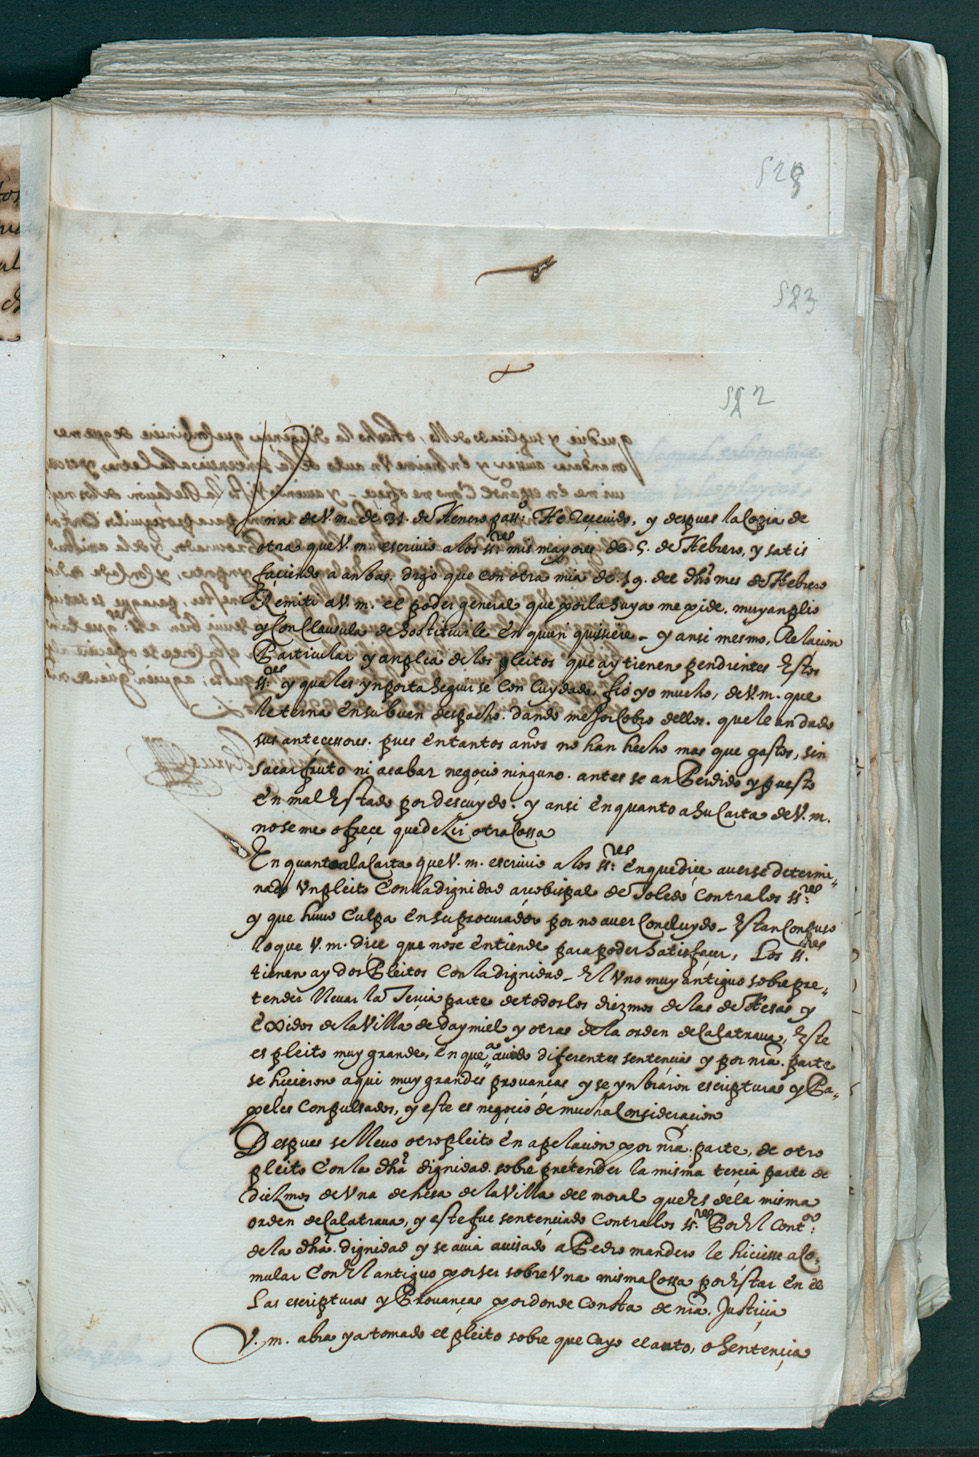 528
523
522
Una de V.m. de 31. de Henero pass.º He Resceuido, y despues la Copia de
otra que V.m. escriuio a los ss.res mis mayores de 5. de Hebrero, y satis
faciendo a anbas. digo que con otra mia de .19. del dho mes de Hebrero
Remiti a V.m. el poder general que por la suya me pide. muy anplio
y Con Clausula de sostituirle en quien quisiere – y ansi mesmo. Relacion
Particular y anplia de los pleitos que ay tienen pendientes Estos
ss.res y que les ynporta seguirse Con Cuydado. fio yo mucho, de V.m. que
le terna en su buen despacho. dando mejor Cobro dellos. que le an dado
sus antecessores. pues en tantos años no han hecho mas que gastos, sin
sacar fruto ni acabar negoçio ninguno. antes se an Perdido y puesto
en mal Estado por descuydo. y ansi en quanto a su Carta de V.m.
no se me ofreçe que dezir otra Cossa
En quanto a la Carta que V.m. escriuio a los ss.res en que dice auerse determi-
nado Un pleito Con la dignidad arçobispal de Toledo Contra los ss.res
y que huuo Culpa en su procurador por no auer Concluydo – Es tan Confuso
lo que V.m. dice que no se entiende para poder satisfacer, Los ss.res
tienen ay dos Pleitos Con la dignidad – El Uno muy antiguo sobre pre-
tender lleuar la Tercia parte de todos los diezmos de las deHesas y
Exidos de la Villa de daymiel y otras de la orden de Calatraua, Este
es pleito muy grande, en que a auido diferentes sentencias y por nra. parte
se hicieron aqui muy grandes prouanças y se ynbiaron escripturas y Pa-
peles Conpulsados, y este es negoçio de mucha Consideraçion
Despues se lleuo otro pleito en apelacion por nra. parte, de otro
pleito Con la dha dignidad. sobre pretender la misma tercia parte de
diezmos de Una dehesa de la Villa del moral que Es de la misma
orden de Calatraua, y este fue sentenciado Contra los ss.res Por El Cont.º
de la dha. dignidad y se auia auisado a Pedro mandero le hiciesse aCo-
mular Con El antiguo por ser sobre Una misma Cossa por Estar en el
Las escripturas y Prouanças por donde Consta de nra. Justiçia
V.m. abra ya tomado el pleito sobre que Cayo el auto, o Sentençia